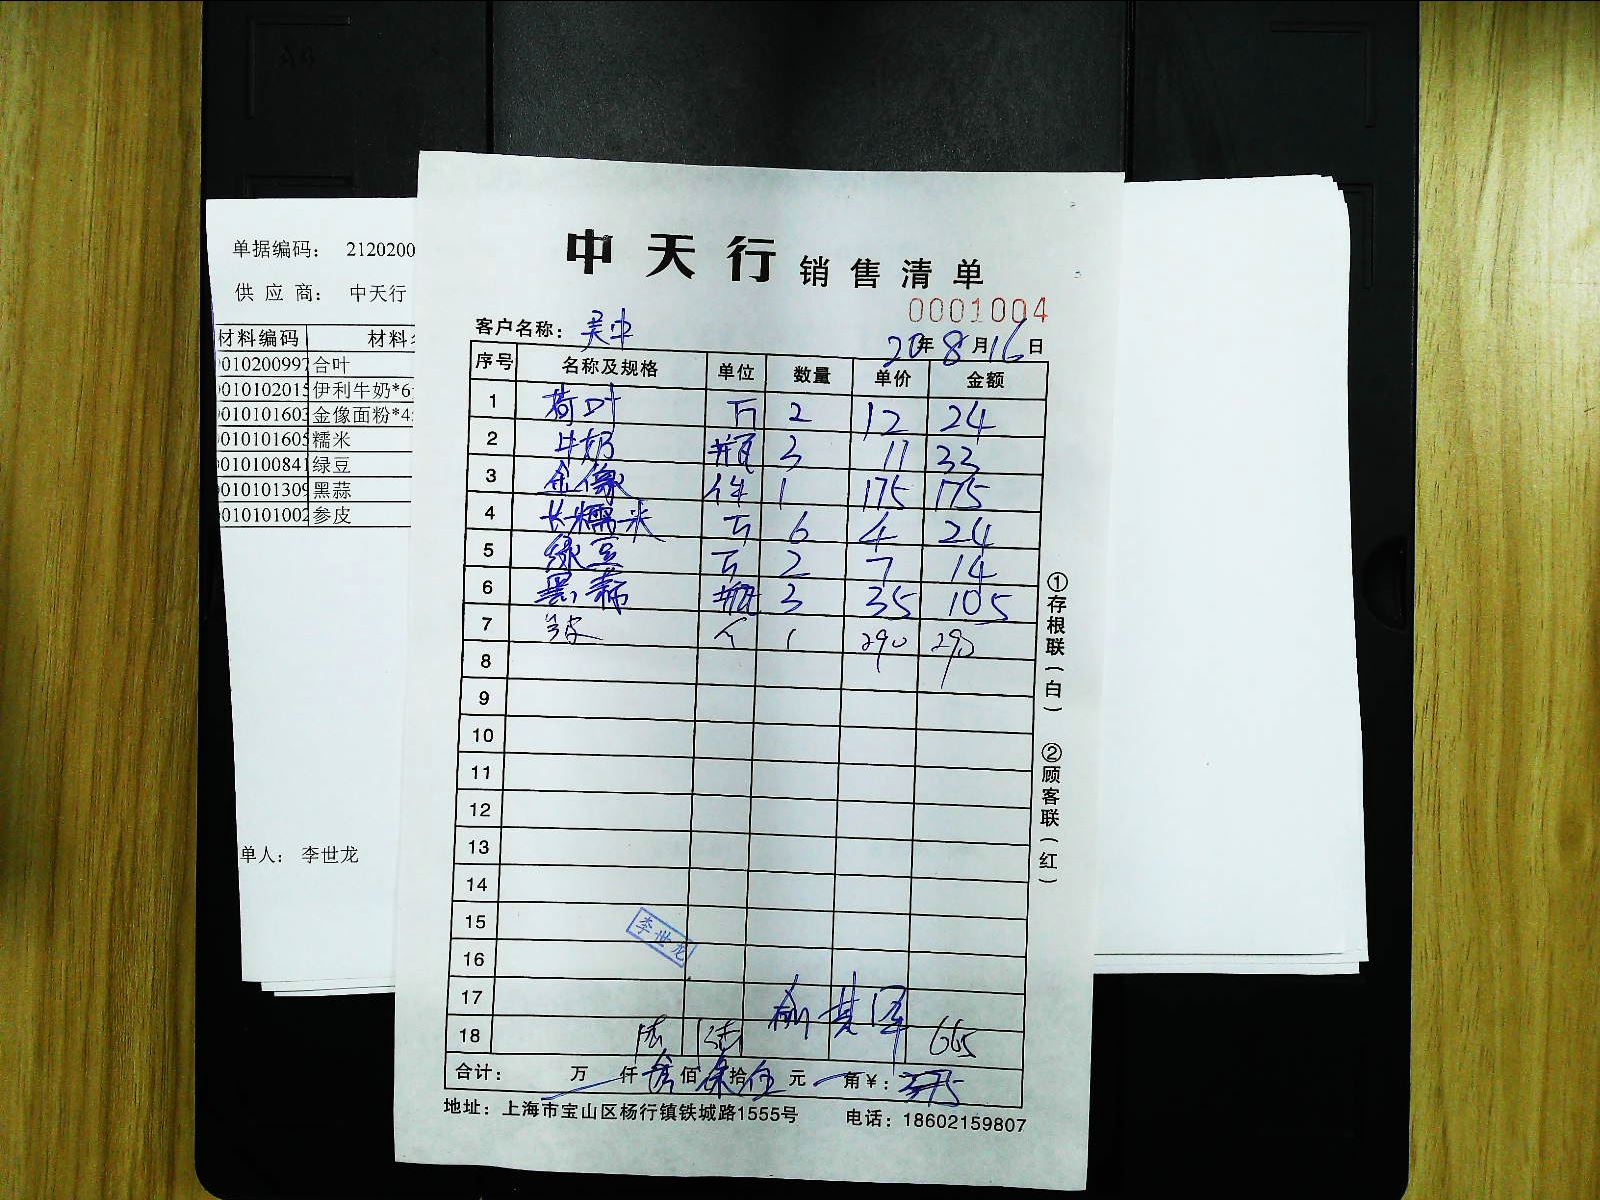 中天行 销售清单
0001004
客户名称： 吴中
20年8月16日
序号 名称及规格 单位 数量 单价 金额
1 荷叶 斤 2 12 24
2 牛奶 瓶 3 11 33
3 金像 件 1 175 175
4 长糯米 斤 6 4 24
5 绿豆 斤 2 7 14
6 黑蒜 瓶 3 35 105
7 参皮 个 1 290 290
8
9
10
11
12
13
14
15
李世龙
16
17
18 陆 陆 665
合计： 万 仟 佰 拾伍元 角¥：375
地址：上海市宝山区杨行镇铁城路1555号 电话：18602159807
①存根联（白）
②顾客联（红）
单据编码： 2120200
供应商： 中天行
材料编码 材料
010200997 合叶
010102015 伊利牛奶*6
010101603 金像面粉*4
010101605 糯米
010100841 绿豆
010101309 黑蒜
010101002 参皮
单人： 李世龙